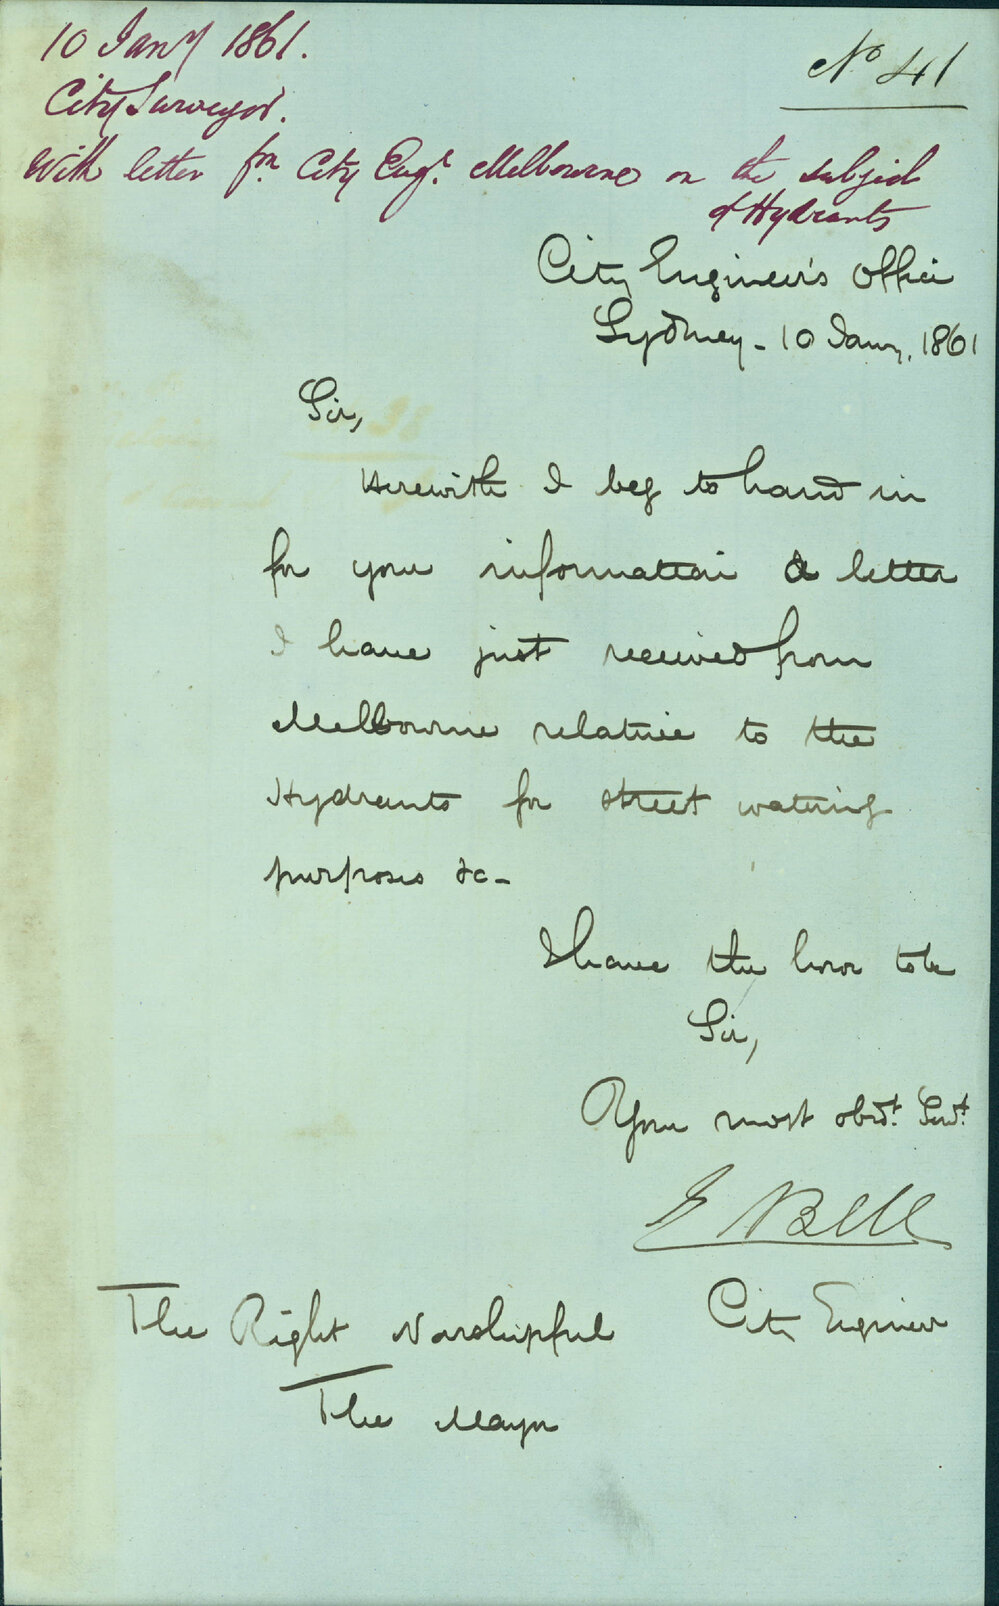 10 Jany 1861.
No 41
City Surveyor.
With letter fm City Engr. Melbourne on the subject
of Hydrants
City Engineer's Office
Sydney - 10 Jany, 1861
Sir,
Herewith I beg to hand in
for your information a letter
I have just received from
Melbourne relative to the
Hydrants for street watering
purposes &c -
I have the honor to be
Sir,
Your most obedt. Servt.
E Bell
City Engineer
The Right Worshipful
The Mayor